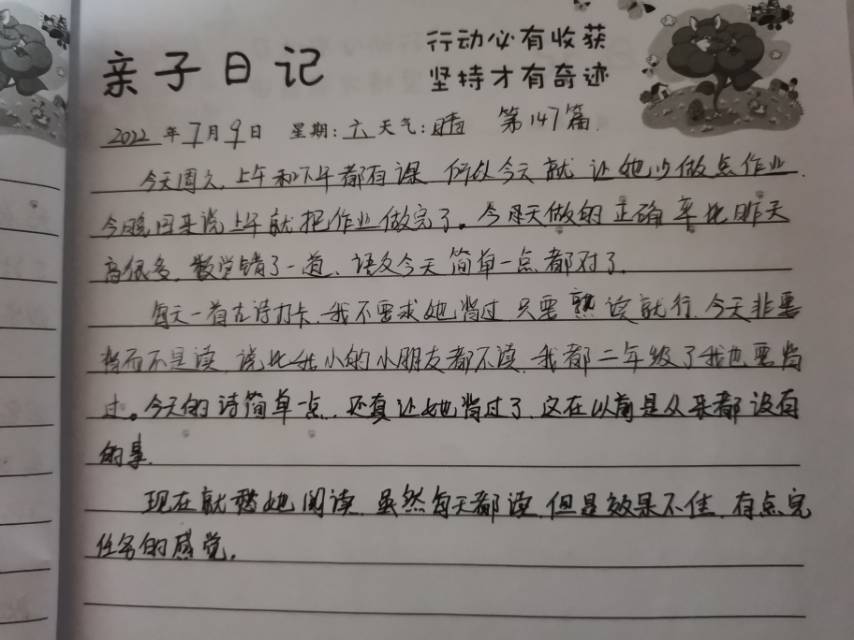 亲子日记
行动必有收获
坚持才有奇迹
2022年7月9日 星期:六 天气:晴 第147篇
今天周六,上午和下午都有课 所以今天就让她少做点作业.
今晚回来说上午就把作业做完了。今天做的正确率比昨天
高很多,数学错了一道、语文今天简单一点都对了.
每天一首古诗打卡,我不要求她背过 只要熟读就行,今天非要
背而不是读,说比我小的小朋友都不读,我都二年级了我也要背
过。今天的诗简单一点,还真让她背过了,这在以前是从来都没有
的事.
现在就愁她阅读,虽然每天都读,但是效果不佳,有点完
任务的感觉.